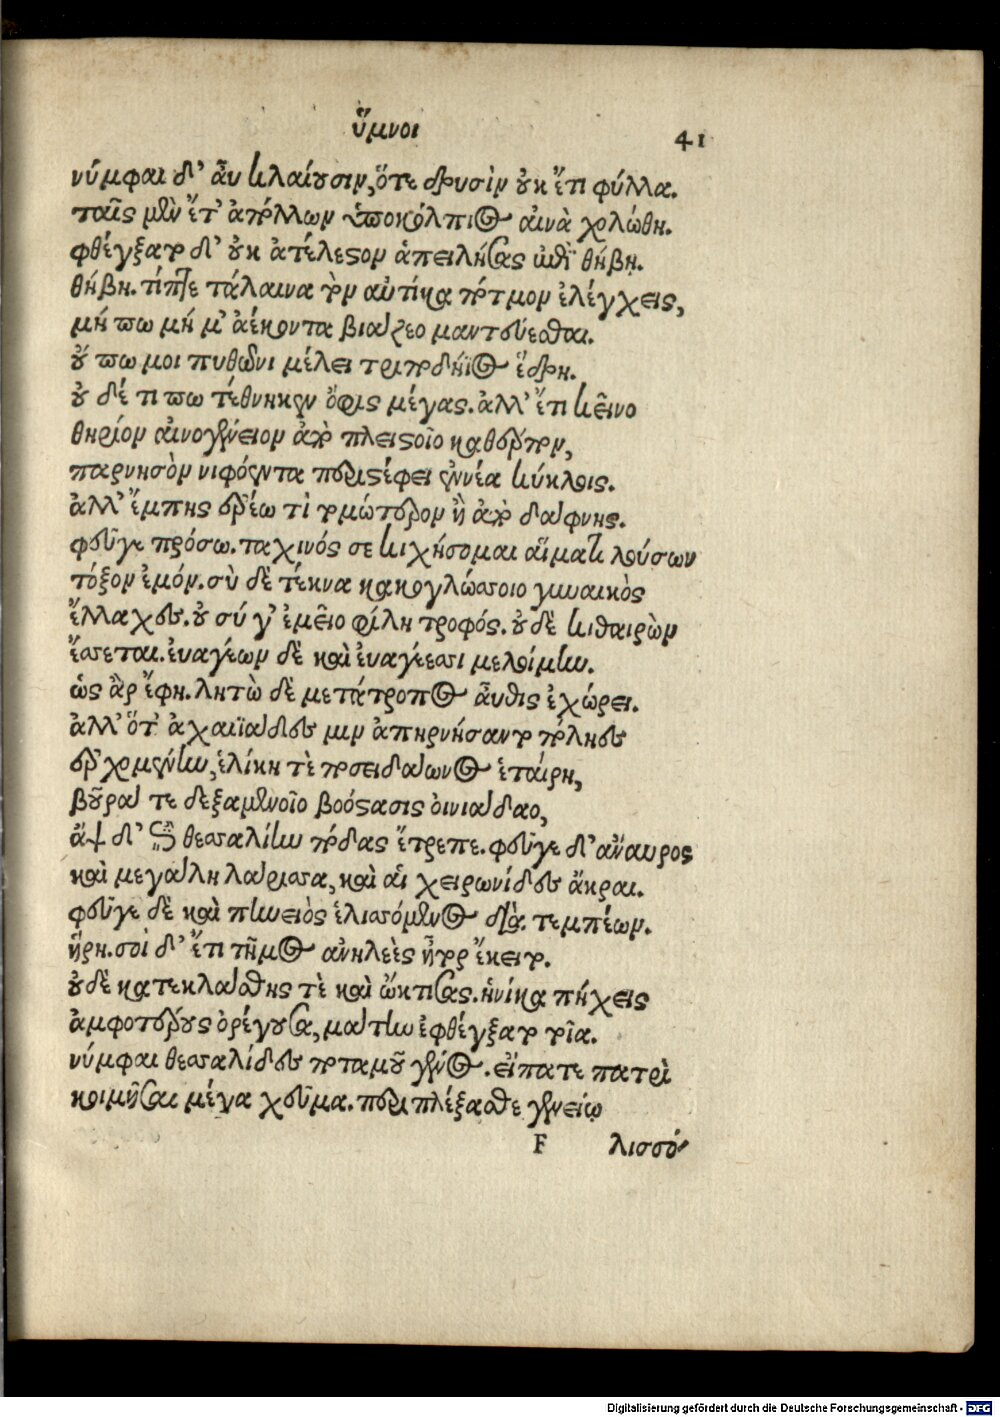 ὕμνοι 41
νύμφαι δ' αὖ κλαίουσιν, ὅτε δρυσὶν οὐκ ἔτι φύλλα.
ταῖς μὲν ἔτ' ἀπόλλων ὑποκόλπιος αἰνὰ χολώθη.
φθέγξατο δ' οὐκ ἀτέλεστον ἀπειλήσας ἐπὶ θήβῃ.
θήβη. τίπτε τάλαινα τὸν αὐτίκα πότμον ἐλέγχεις,
μή πω μή μ' ἀέκοντα βιάζεο μαντεύεσθαι.
οὔ πω μοι πυθῶνι μέλει τριποδήϊος ἕδρη.
οὐ δέ τι πω τέθνηκεν ὄφις μέγας. ἀλλ' ἔτι κεῖνο
θηρίον αἰνογένειον ἀπὸ πλειστοῖο καθέρπον,
παρνησὸν νιφόεντα περιστέφει ἐννέα κύκλοις.
ἀλλ' ἔμπης ἐρέω τὶ τομώτερον ἢ ἀπὸ δάφνης.
φεῦγε πρόσω. ταχινός σε κιχήσομαι αἵματι λούσων
τόξον ἐμόν. σὺ δὲ τέκνα κακογλώσσοιο γυναικὸς
ἔλλαχες. οὐ σύ γ' ἐμεῖο φίλη τροφός. οὐδὲ κιθαιρὼν
ἔσσεται. ἐυαγέων δὲ καὶ ἐυαγέεσσι μελοίμην.
ὡς ἂρ ἔφη. λητὼ δὲ μετάτροπος αὖθις ἐχώρει.
ἀλλ' ὅτ' ἀχαιϊάδες μιν ἀπηρνήσαντο πόληες
ἐρχομένην, ἑλίκη τὲ ποσειδάωνος ἑταίρη,
βοῦρά τε δεξαμενοῖο βοόστασις οἰνιάδαο,
ἂψ δ' ἐπὶ θεσσαλίην πόδας ἔτρεπε. φεῦγε δ' ἄναυρος
καὶ μεγάλη λάρισσα, καὶ αἱ χειρωνίδες ἄκραι.
φεῦγε δὲ καὶ πηνειὸς ἑλισσόμενος διὰ τεμπέων.
ἥρη. σοὶ δ' ἔτι τῆμος ἀνηλεὲς ἦτορ ἔκειτο.
οὐδὲ κατεκλάσθης τὲ καὶ ὤκτισας. ἡνίκα πήχεις
ἀμφοτέρους ὀρέγουσα, μάτην ἐφθέγξατο τοῖα.
νύμφαι θεσσαλίδες ποταμοῦ γένος. εἴπατε πατρὶ
κοιμῆσαι μέγα χεῦμα. περιπλέξασθε γενείῳ
F λισσό
Digitalisierung gefördert durch die Deutsche Forschungsgemeinschaft - DFG